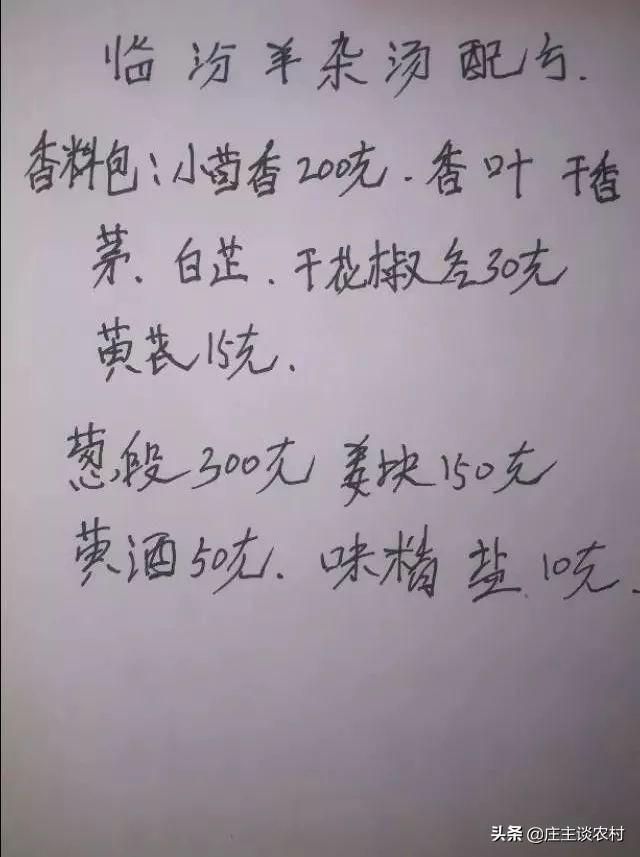 临汾羊杂汤配方.
香料包:小茴香200克.香叶 干香
茅、白芷、干花椒各30克
黄芪15克.
葱段300克 姜块150克
黄酒50克. 味精 盐 10克.
头条 @庄主谈农村